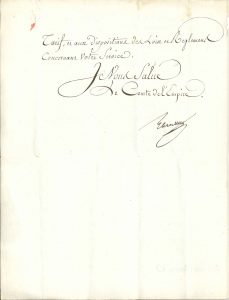 Tarif, et aux dispositions des Loix et Reglemens
Concernant Votre Service.
Je Vous Salue
Le Comte de l'Empire